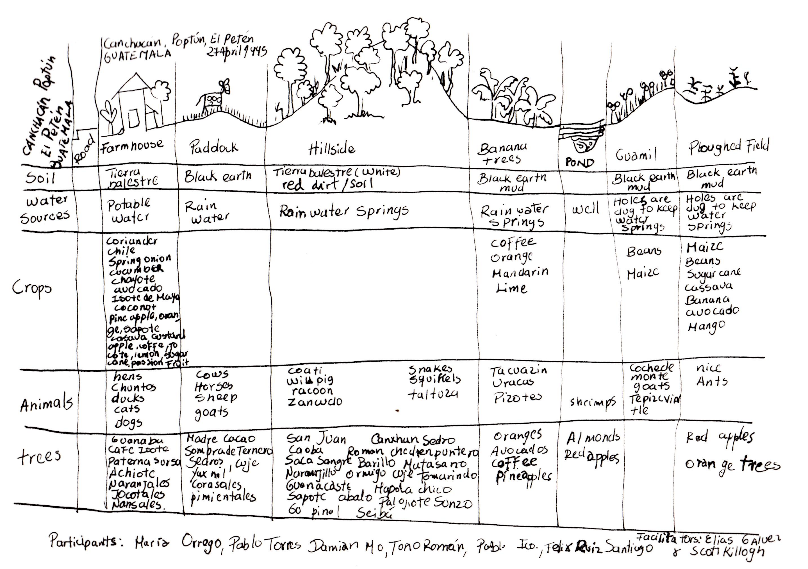 Canchacan, Poptún, El Petén
GUATEMALA 27 April 1995
CANCHACÁN Poptún
El Petén
GUATEMALA
Road
Farmhouse
Paddock
Hillside
Banana
trees
POND
Guamil
Ploughed Field
Soil
Tierra
balestre
Black earth
Tierra balestre (white)
red dirt/soil
Black earth
mud
Black earth
mud
Black earth
mud
Water
Sources
Potable
water
Rain
water
Rain water Springs
Rain water
Springs
Well
Holes are
dug to keep
water
Springs
Holes are
dug to keep
water
springs
Crops
coriander
chile
Spring onion
cucumber
chayote
avocado
Izote de Maya
coconut
pineapple, oran
ge, sapote
casava, custard
apple, coffe, to
cote, lemon, sugar
cane, passion fruit
coffee
orange
Mandarin
Lime
Beans
Maize
Maize
Beans
Sugar cane
cassava
Banana
avocado
Mango
Animals
hens
chuntos
ducks
cats
dogs
cows
Horses
sheep
goats
coati
wild pig
racoon
zanwdo
snakes
squirrels
taltuza
Tacuazin
Uracus
Pizotes
shrimps
cochede
monte
goats
Tepizcuin
tle
nice
Ants
trees
Guanaba
Cafe Izote
Paterna
Achiote
Naranjales
Jocotales
Nansales
Madre Cacao
Sombra de Ternero
Sedros, cuje
Yaxnil,
Corasales,
pimientales
San Juan Canxhun Sedro
Caoba Roman chechen puntero
Saca Sangre Barillo Matasano
Naranjillo Ormigo cuje Tamarindo
Guanacaste Hapola chico
Sapote abalo Palojiote Sunzo
Go pinol Seiba
oranges
Avocados
coffee
Pineapples
Almonds
Red apples
Red apples
orange trees
Participants: María Orrego, Pablo Torres Damian Mo, Toño Román, Pablo Ico, Felix Ruiz Santiago
Facilitators: Elias Galvez
& Scott Killogh